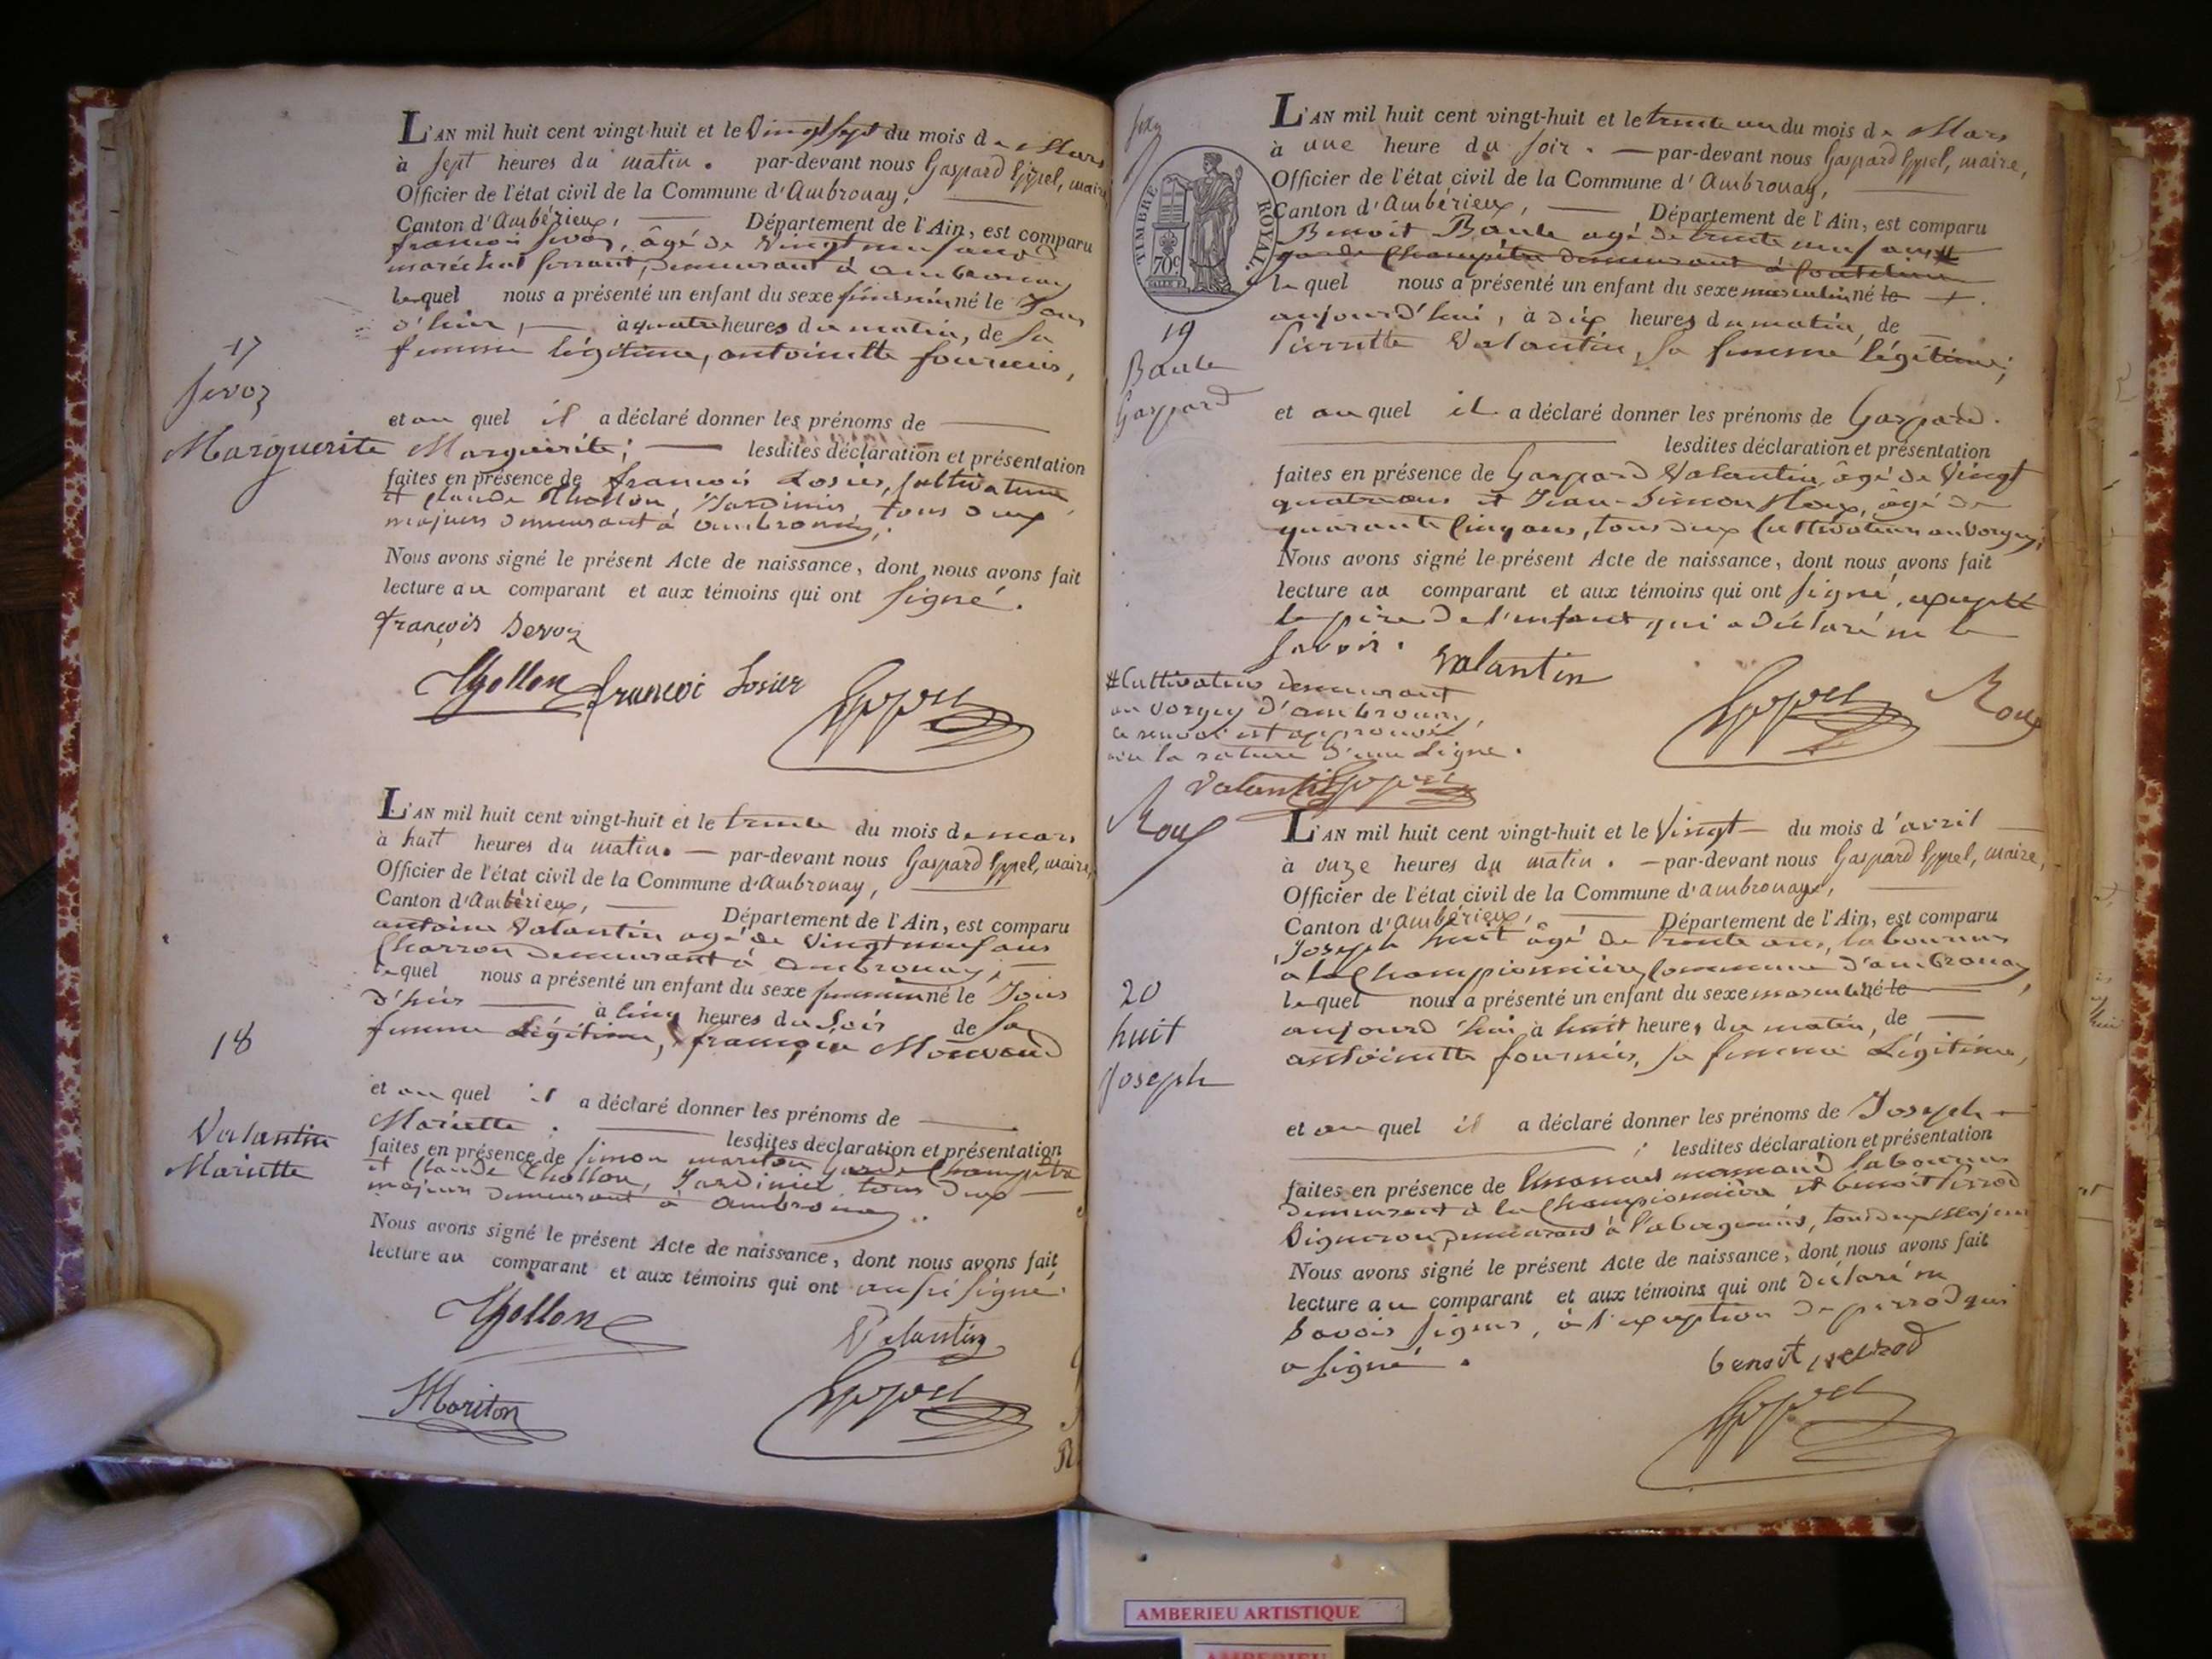 L'AN mil huit cent vingt-huit et le Vingt sept du mois de Mars
à sept heures du matin. par-devant nous Gaspard Eppel, maire,
Officier de l'état civil de la Commune d'Ambronay,
Canton d'Ambérieux, Département de l'Ain, est comparu
françois Sevoz, âgé de Vingt neuf ans
maréchal ferrant, demeurant à ambronay
lequel nous a présenté un enfant du sexe féminin né le Jour
d'hier, à quatre heures du matin, de sa
femme légitime, antoinette fournier,
17
Sevoz
Marguerite
et au quel il a déclaré donner les prénoms de
Marguerite; lesdites déclaration et présentation
faites en présence de francois Losier, Cultivateur
et Claude Thollon, Jardinier, tous deux
majeurs demeurant à ambronay,
Nous avons signé le présent Acte de naissance, dont nous avons fait
lecture au comparant et aux témoins qui ont signé.
françois Sevoz
Thollon francoi Losier Eppel
L'AN mil huit cent vingt-huit et le trente du mois de mars
à huit heures du matin. par-devant nous Gaspard Eppel, maire,
Officier de l'état civil de la Commune d'Ambronay,
Canton d'Ambérieux, Département de l'Ain, est comparu
antoine Valantin agé de Vingt neuf ans
Charron demeurant à ambronay;
lequel nous a présenté un enfant du sexe feminin né le Jour
d'hier à Cinq heures du Soir de sa
femme Légitime, françoise
18
Valantin
Mariette
et au quel il a déclaré donner les prénoms de
Mariette. lesdites déclaration et présentation
faites en présence de Simon mariton garde Champêtre
et Claude Thollon, Jardinier, tous deux
majeurs demeurant à ambronay.
Nous avons signé le présent Acte de naissance, dont nous avons fait
lecture au comparant et aux témoins qui ont aussi signé.
Thollon Valantin
Mariton Eppel
TIMBRE ROYAL.
70c
L'AN mil huit cent vingt-huit et le trente un du mois de Mars
à une heure du soir. par-devant nous Gaspard Eppel, maire,
Officier de l'état civil de la Commune d'Ambronay,
Canton d'Ambérieux, Département de l'Ain, est comparu
Benoit Baule agé de trente neuf ans #
garde Champêtre demeurant à
lequel nous a présenté un enfant du sexe masculin né le
aujourd'hui, à dix heures du matin, de
Pierrette Valantin, sa femme légitime;
19
Baule
Gaspard
et au quel il a déclaré donner les prénoms de Gaspard.
lesdites déclaration et présentation
faites en présence de Gaspard Valantin, âgé de Vingt
quatre ans et Jean-Simon Roux, âgé de
quarante Cinq ans, tous deux Cultivateurs au Vorgey;
Nous avons signé le présent Acte de naissance, dont nous avons fait
lecture au comparant et aux témoins qui ont signé, excepté
le père de l'enfant qui a déclaré ne le
savoir.
Valantin Eppel Roux
# Cultivateur demeurant
au Vorgey d'ambronay,
ce renvoi est approuvé
ainsi la rature d'une Ligne.
Valantin Eppel
Roux
L'AN mil huit cent vingt-huit et le Vingt du mois d'avril
à onze heures du matin. par-devant nous Gaspard Eppel, maire,
Officier de l'état civil de la Commune d'ambronay,
Canton d'Ambérieux, Département de l'Ain, est comparu
Joseph huit âgé de trente ans, laboureur
à la Championnière Commune d'ambronay,
lequel nous a présenté un enfant du sexe masculin né le
aujourd'hui à huit heures du matin, de
antoinette fournier, sa femme Légitime,
20
huit
Joseph
et au quel il a déclaré donner les prénoms de Joseph
; lesdites déclaration et présentation
faites en présence de laboureur
demeurant à la Championnière et benoit Perrod
Vigneron demeurant à tous deux Majeurs
Nous avons signé le présent Acte de naissance, dont nous avons fait
lecture au comparant et aux témoins qui ont déclaré ne
savoir signer, à l'exception de perrod qui
a signé.
benoit perrod
Eppel
AMBERIEU ARTISTIQUE
AMBERIEU